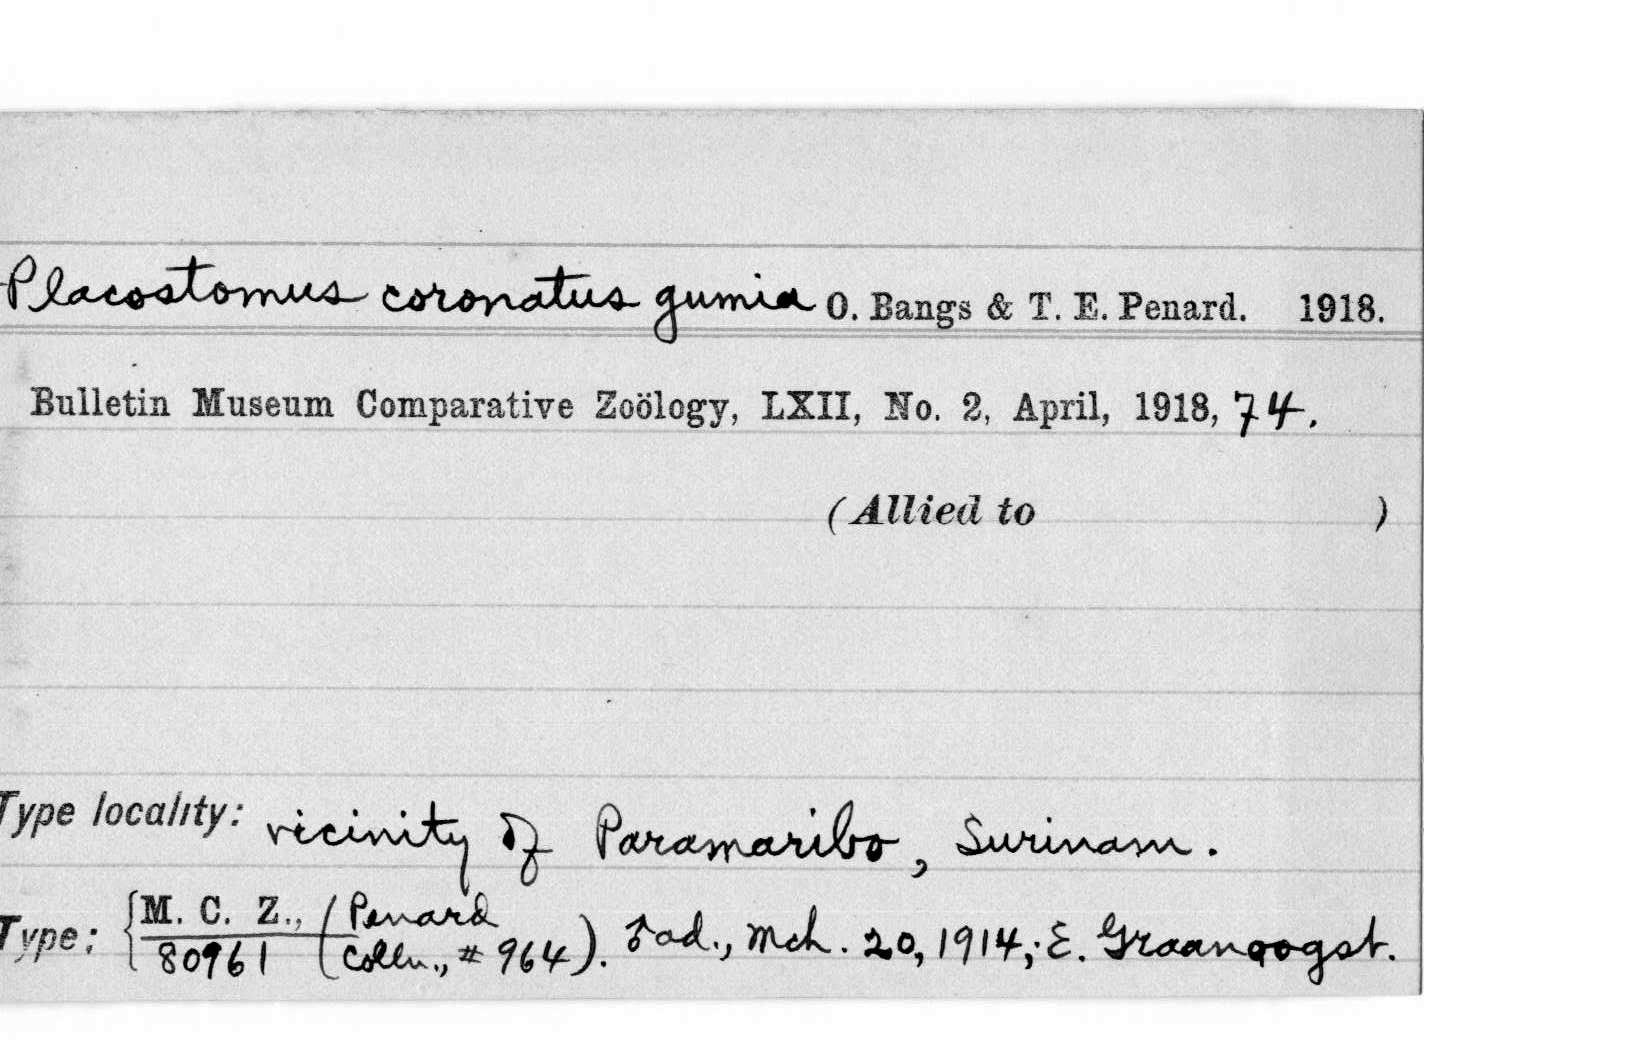 Placostomus coronatus gumia O. Bangs & T. E. Penard. 1918.
Bulletin Museum Comparative Zoölogy, LXII, No. 2, April, 1918, 74.
(Allied to )
Type locality: vicinity of Paramaribo, Surinam.
Type: { M. C. Z., 80961 (Penard Colln., # 964). ♂ ad., Mch. 20, 1914; E. Graanoogst.